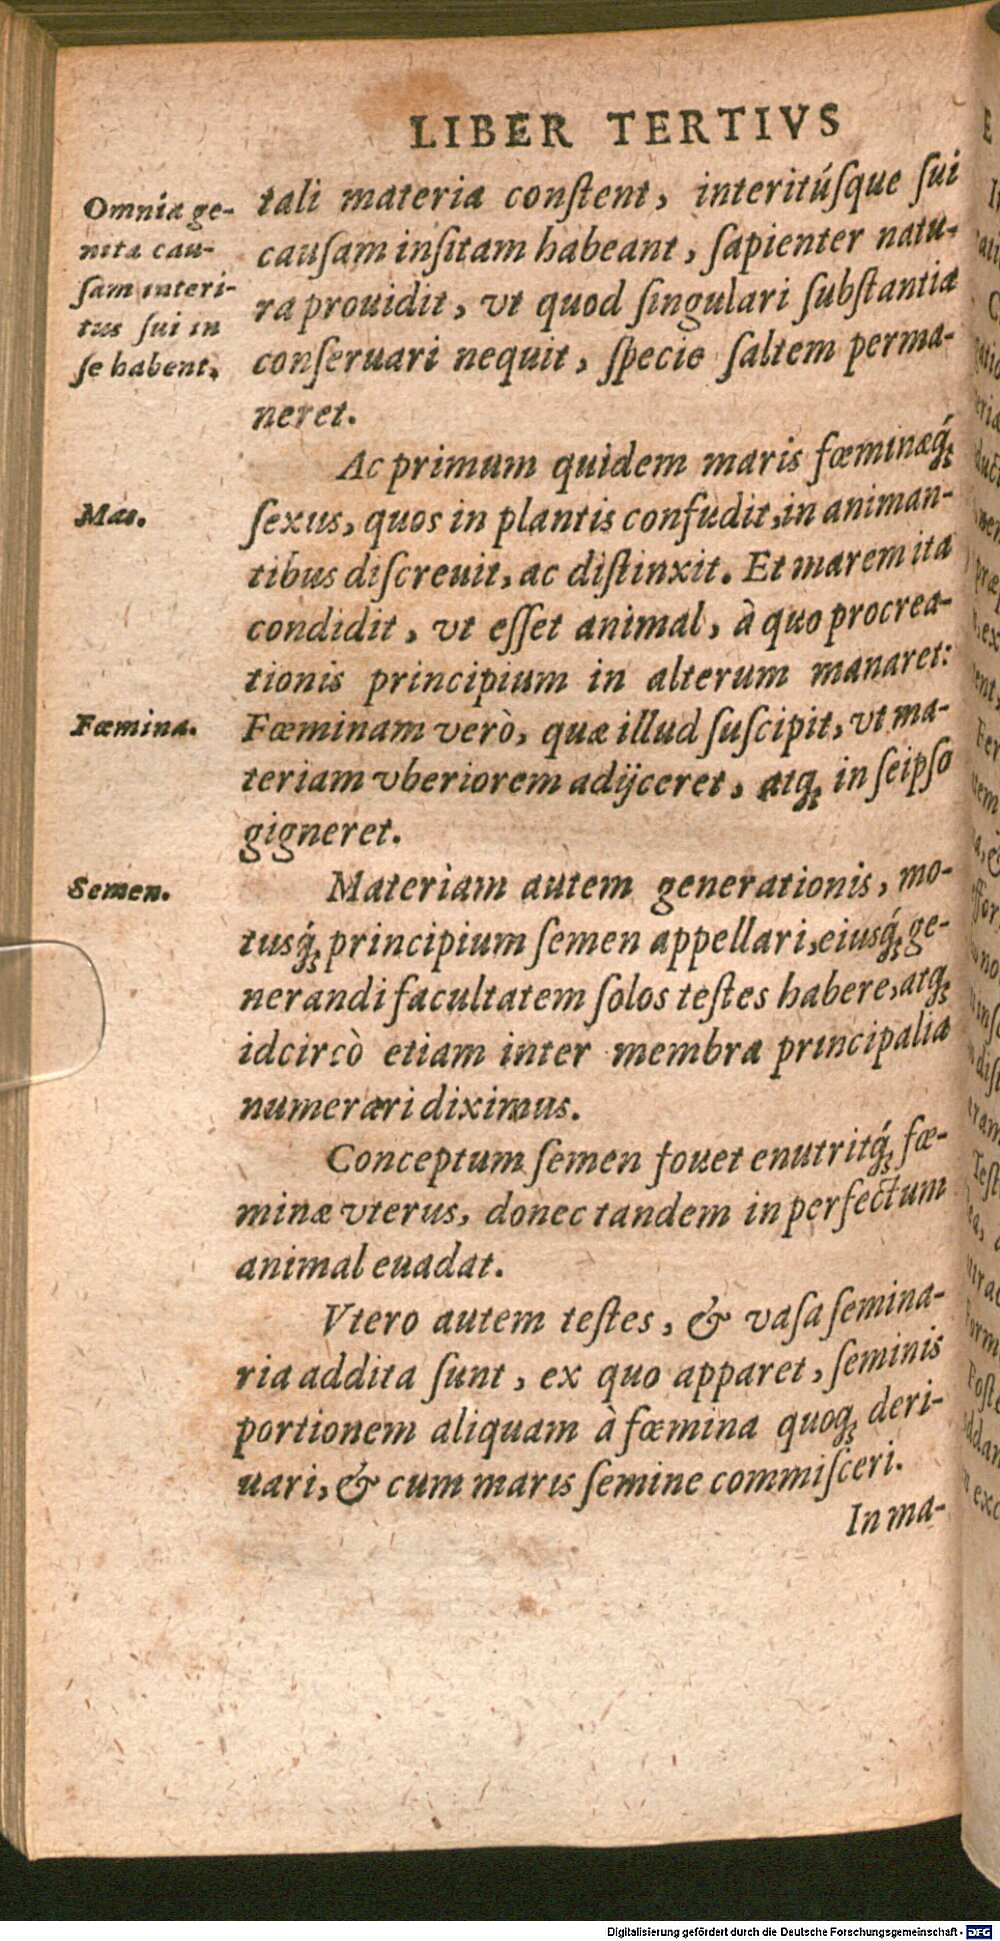 LIBER TERTIVS
Omnia ge-
nita cau-
ſam interi-
tus ſui in
ſe habent.
tali materia conſtent, interitúſque ſui
cauſam inſitam habeant, ſapienter natu-
ra prouidit, vt quod ſingulari ſubſtantia
conſeruari nequit, ſpecie ſaltem perma-
neret.
Ac primum quidem maris fœminæq́;
Mas.
ſexus, quos in plantis confudit, in animan-
tibus diſcreuit, ac diſtinxit. Et marem ita
condidit, vt eſſet animal, à quo procrea-
tionis principium in alterum manaret:
Fœmina.
Fœminam verò, quæ illud ſuſcipit, vt ma-
teriam vberiorem adijceret, atq; in ſeipſo
gigneret.
Semen.
Materiam autem generationis, mo-
tusq́; principium ſemen appellari, eiusq́; ge-
nerandi facultatem ſolos teſtes habere, atq;
idcircò etiam inter membra principalia
numerari diximus.
Conceptum ſemen fouet enutritq́; fœ-
minæ vterus, donec tandem in perfectum
animal euadat.
Vtero autem teſtes, & vaſa ſemina-
ria addita ſunt, ex quo apparet, ſeminis
portionem aliquam à fœmina quoq; deri-
uari, & cum maris ſemine commiſceri.
In ma-
Digitalisierung gefördert durch die Deutsche Forschungsgemeinschaft - DFG